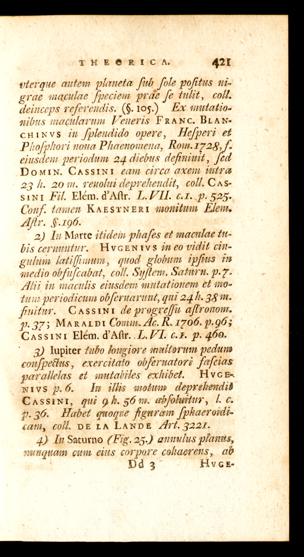 THEORICA. 421
vterque autem planeta sub sole positus ni-
grae maculae speciem prae se tulit, coll.
deinceps referendis. (§. 105.) Ex mutatio-
nibus macularum Veneris FRANC. BLAN-
CHINVS in splendido opere, Hesperi et
Phosphori noua Phaenomena, Rom. 1728, f.
eiusdem periodum 24 diebus definiuit, sed
DOMIN. CASSINI eam circa axem intra
23 h. 20 m. reuolui deprehendit, coll. CAS-
SINI Fil. Elém. d'Astr. L. VII. c.1. p. 525.
Conf. tamen KAESTNERI monitum Elem.
Astr. §. 196.
2) In Marte itidem phases et maculae tu-
bis cernuntur. HVGENIVS in eo vidit cin-
gulum latissimum, quod globum ipsius in
medio obfuscabat, coll. System. Saturn. p. 7.
Alii in maculis eiusdem mutationem et mo-
tum periodicum obseruarunt, qui 24 h. 38 m.
finitur. CASSINI de progressu astronom.
p. 37; MARALDI Comm. Ac. R. 1706. p. 96;
CASSINI Elém. d'Astr. L. VI. c.1. p. 460.
3) Iupiter tubo longiore multorum pedum
conspectus, exercitato obseruatori fascias
parallelas et mutabiles exhibet. HVGE-
NIVS p. 6. In illis motum deprehendit
CASSINI, qui 9 h. 56 m. absoluitur, l. c.
p. 36. Habet quoque figuram sphaeroidi-
cam, coll. DE LA LANDE Art. 3221.
4) In Saturno (Fig. 25.) annulus planus,
nunquam cum eius corpore cohaerens, ab
Dd 3 HVGE-